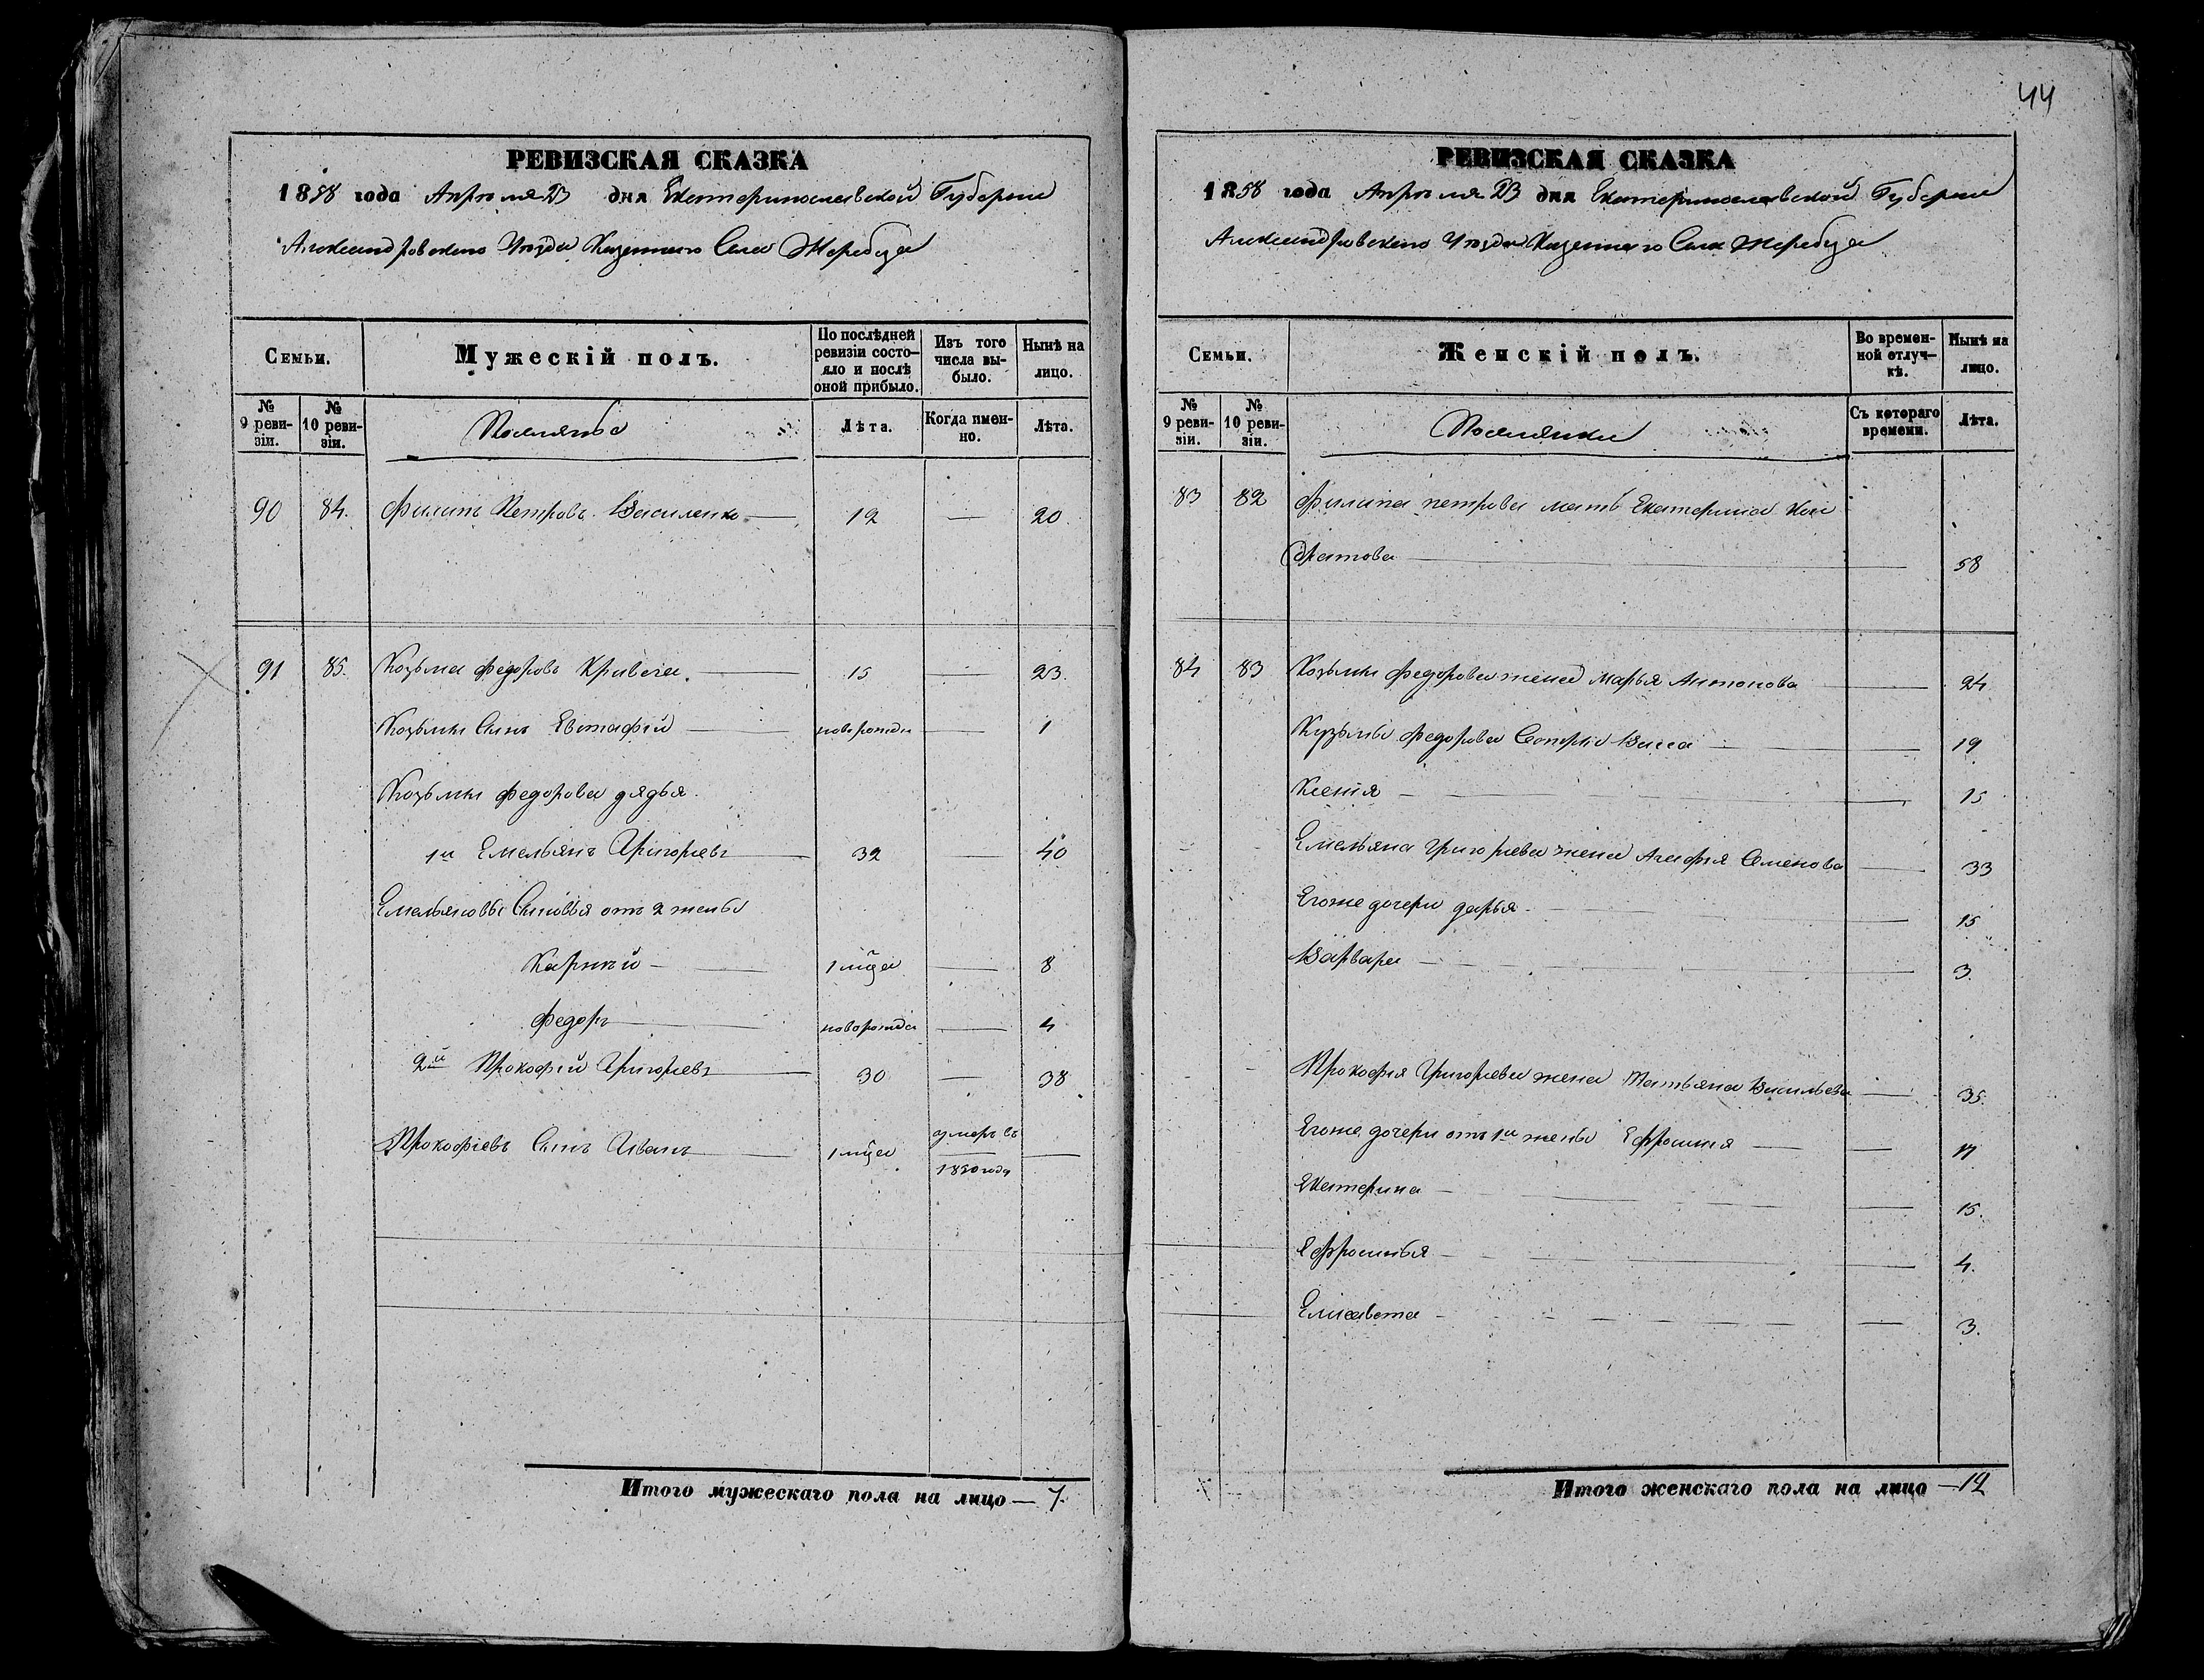 44
РЕВИЗСКАЯ СКАЗКА
1858 года Апреля 23 дня Екатеринославской Губернии
Александровского Уезда Казенного Села Жеребца
Семьи. Мужескій полъ. По послѣдней ревизіи состо- яло и послѣ оной прибыло. Изъ того числа вы- было. Нынѣ на лицо.
№ 9 реви- зіи. № 10 реви- зіи. Поселяне Лѣта. Когда имен- но. Лѣта.
90 84. Филипъ Петровъ Василенко 12 — 20
91 85. Козьма Федоровъ Кривега 15 — 23.
Козьмы Сынъ Евстафій новорожде — 1
Козьмы Федорова дядья
1й Емельянъ Григорьевъ 32 — 40
Емельяновы Сыновья отъ 2 жены
Карпій 1 мца — 8
Федоръ новорожде — 4
2й Прокофій Григорьевъ 30 — 38
Прокофіевъ Сынъ Иванъ 1 мца умеръ въ 1850 года —
Итого мужескаго пола на лицо — 7.
РЕВИЗСКАЯ СКАЗКА
1858 года Апреля 23 дня Екатеринославской Губернии
Александровского Уезда Казенного Села Жеребца
Семьи. Женскій полъ. Во времен- ной отлуч- кѣ. Нынѣ на лицо.
№ 9 реви- зіи. № 10 реви- зіи. Поселянки Съ котораго времени. Лѣта.
83 82 Филипа Петрова мать Екатерина Кон
дратова — 58
84 83 Козьмы Федорова жена Марья Антонова — 24
Кузьмы Федорова Сестры Васса — 19
Ксенія — 15
Емельяна Григорьева жена Агафья Семенова — 33
Егоже дочери Дарья — 15
Варвара — 3.
Прокофья Григорьева жена Татьяна Васильева — 35.
Егоже дочери отъ 1й жены Ефросинія — 17
Екатерина — 15.
Ефросинья — 4.
Елисавета — 3.
Итого женскаго пола на лицо — 12